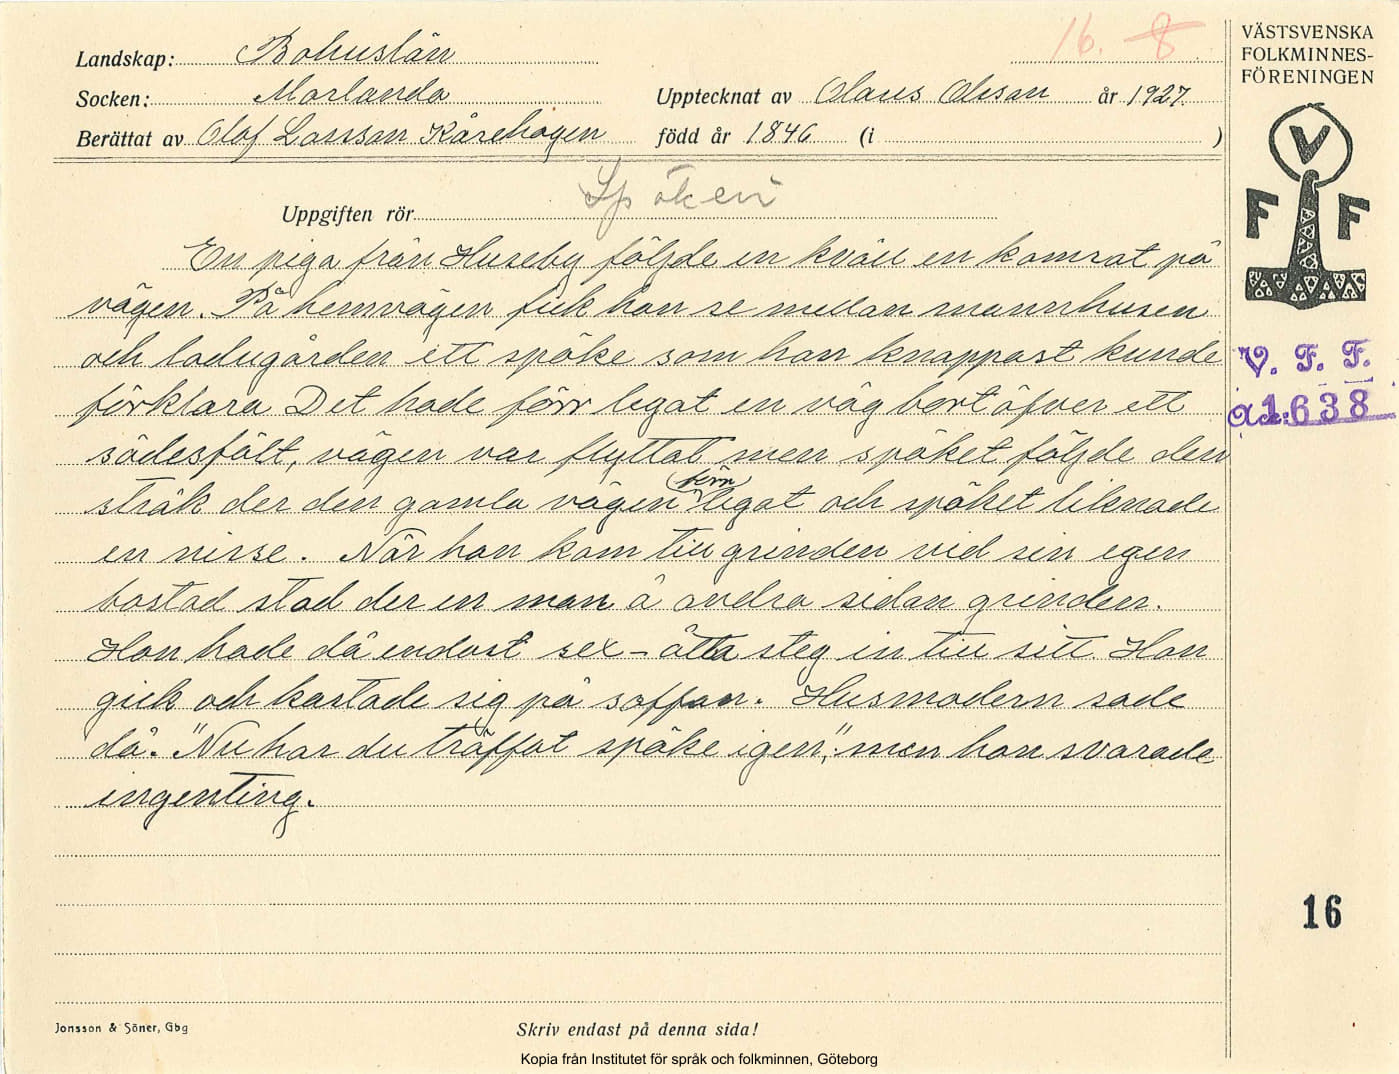 16. 8
VÄSTSVENSKA
FOLKMINNES-
FÖRENINGEN
Landskap: Bohuslän
Socken: Morlanda Upptecknat av Olaus Olsson år 1927.
Berättat av Olof Larsson Kårehogen född år 1846 (i )
V
F F
Uppgiften rör Spökeri
En piga från Huseby följde en kväll en kamrat på
vägen. På hemvägen fick hon se mellan mannhusen
och ladugården ett spöke som hon knappast kunde
förklara Det hade förr legat en väg bort öfver ett
sädesfält, vägen var flyttat men spöket följde den
stråk der den gamla vägen (förr) legat och spöket liknade
en nisse. När hon kom till grinden vid sin egen
bostad stod der en man å andra sidan grinden.
Hon hade då endast sex-åtta steg in till sitt. Hon
gick och kastade sig på soffan. Husmodern sade
då. "Nu har du träffat spöke igen", men hon svarade
ingenting.
V. F. F.
Acc: 1638
16
Jonsson & Söner, Gbg
Skriv endast på denna sida!
Kopia från Institutet för språk och folkminnen, Göteborg